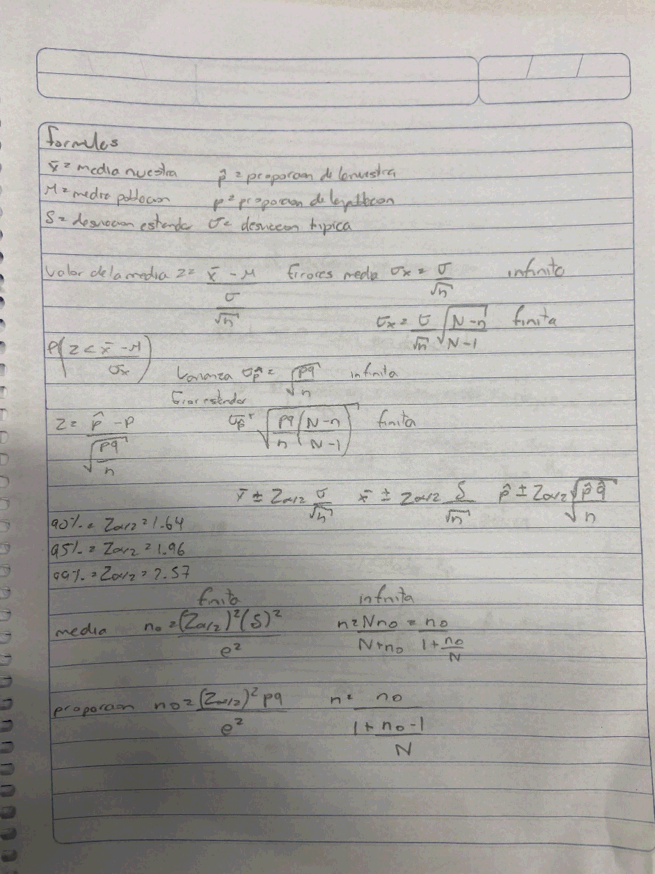 formulas
x̄ = media muestra p̂ = proporcion de la muestra
M = media poblacion p = proporcion de la poblacion
S = desviacion estandar σ = desviacion tipica
Valor de la media z = x̄ - M / σ/√n Errores media σx = σ/√n infinito
σx = σ/√n √(N-n / N-1) finita
P(z < x̄ - M / σx)
Varianza σp̂ = √(pq/n) infinita
Error estandar
z = p̂ - P / √(pq/n) σp̂ = √(pq/n (N-n / N-1)) finita
x̄ ± Zα/2 σ/√n x̄ ± Zα/2 S/√n p̂ ± Zα/2 √(p̂q̂/n)
90% = Zα/2 = 1.64
95% = Zα/2 = 1.96
99% = Zα/2 = 2.57
finito infinita
media no = (Zα/2)²(S)² / e² n = Nno / N+no = no / 1 + no/N
proporcion no = (Zα/2)² pq / e² n = no / 1 + no-1 / N